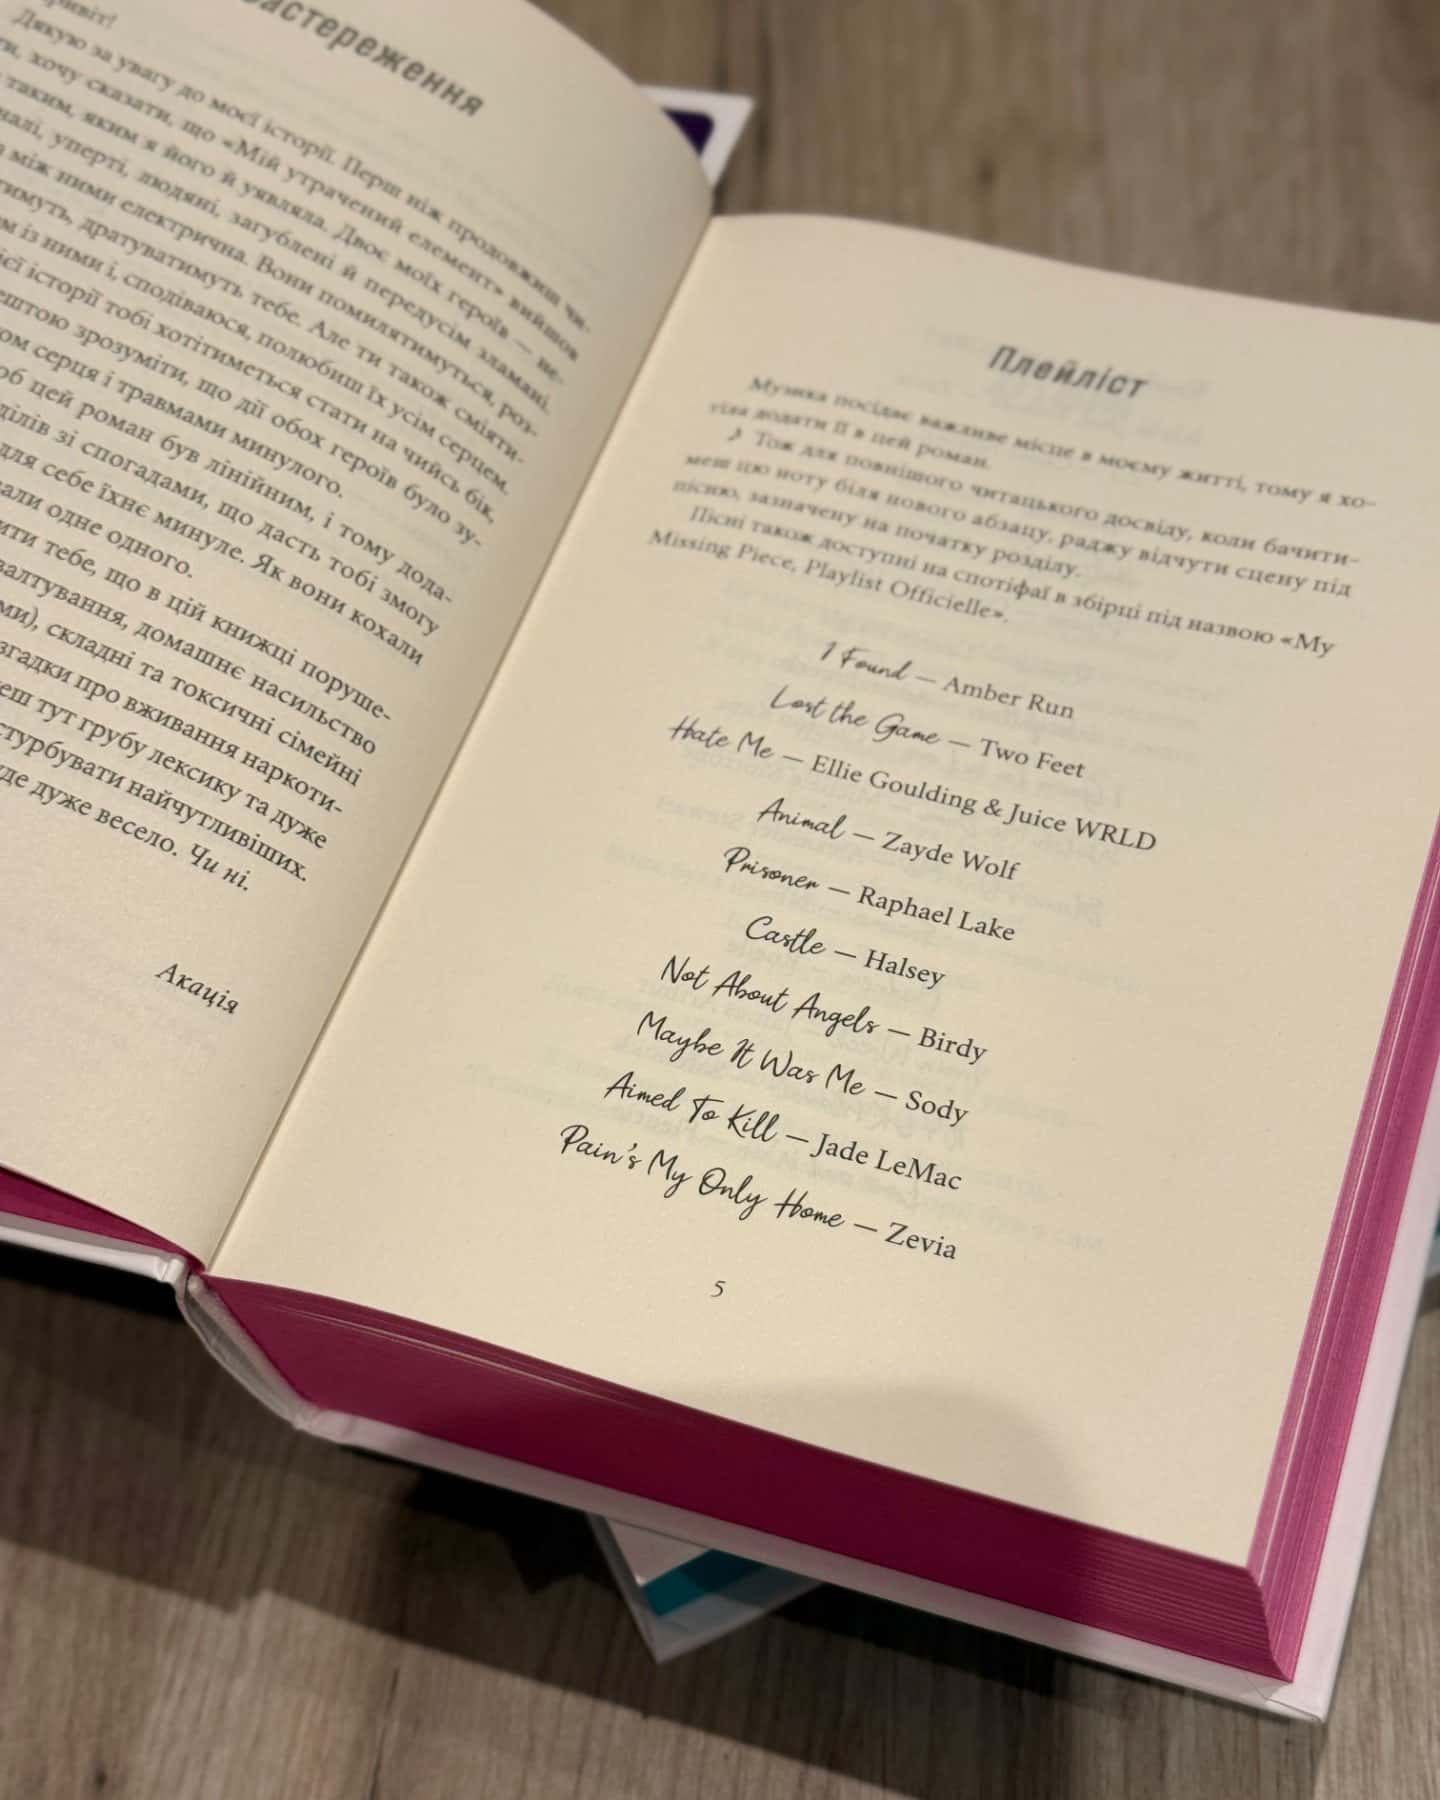 застереження
Привіт!
Дякую за увагу до моєї історії. Перш ніж продовжиш чи-
ти, хочу сказати, що «Мій утрачений елемент» вийшов
таким, яким я його й уявляла. Двоє моїх героїв — не-
налі, уперті, людяні, загублені й передусім зламані.
між ними електрична. Вони помилятимуться, роз-
тимуть, дратуватимуть тебе. Але ти також сміяти-
із ними і, сподіваюся, полюбиш їх усім серцем.
історії тобі хотітиметься стати на чийсь бік,
ештою зрозуміти, що дії обох героїв було зу-
ом серця і травмами минулого.
об цей роман був лінійним, і тому дода-
ділів зі спогадами, що дасть тобі змогу
для себе їхнє минуле. Як вони кохали
али одне одного.
ити тебе, що в цій книжці поруше-
валтування, домашнє насильство
ми), складні та токсичні сімейні
згадки про вживання наркоти-
еш тут грубу лексику та дуже
стурбувати найчутливіших.
де дуже весело. Чи ні.
Акація
Плейліст
Музика посідає важливе місце в моєму житті, тому я хо-
тіла додати її в цей роман.
♪ Тож для повнішого читацького досвіду, коли бачити-
меш цю ноту біля нового абзацу, раджу відчути сцену під
пісню, зазначену на початку розділу.
Пісні також доступні на спотіфаї в збірці під назвою «My
Missing Piece, Playlist Officielle».
I Found — Amber Run
Lost the Game — Two Feet
Hate Me — Ellie Goulding & Juice WRLD
Animal — Zayde Wolf
Prisoner — Raphael Lake
Castle — Halsey
Not About Angels — Birdy
Maybe It Was Me — Sody
Aimed To Kill — Jade LeMac
Pain's My Only Home — Zevia
5